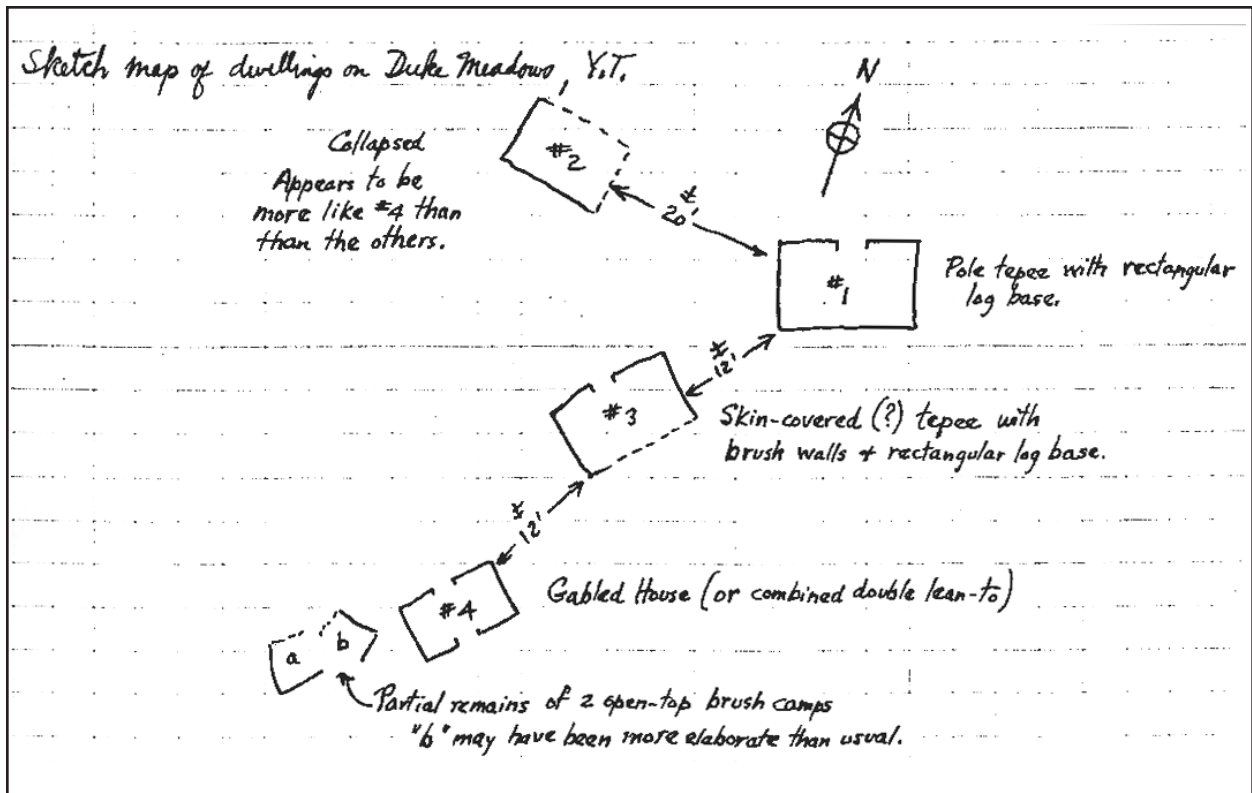 Sketch map of dwellings on Duke Meadows, Y.T.
N
Collapsed
Appears to be
more like #4 than
than the others.
#2
± 20'
#1
Pole tepee with rectangular
log base.
± 12'
#3
Skin-covered (?) tepee with
brush walls + rectangular log base.
± 12'
#4
Gabled House (or combined double lean-to)
a
b
Partial remains of 2 open-top brush camps
"b" may have been more elaborate than usual.